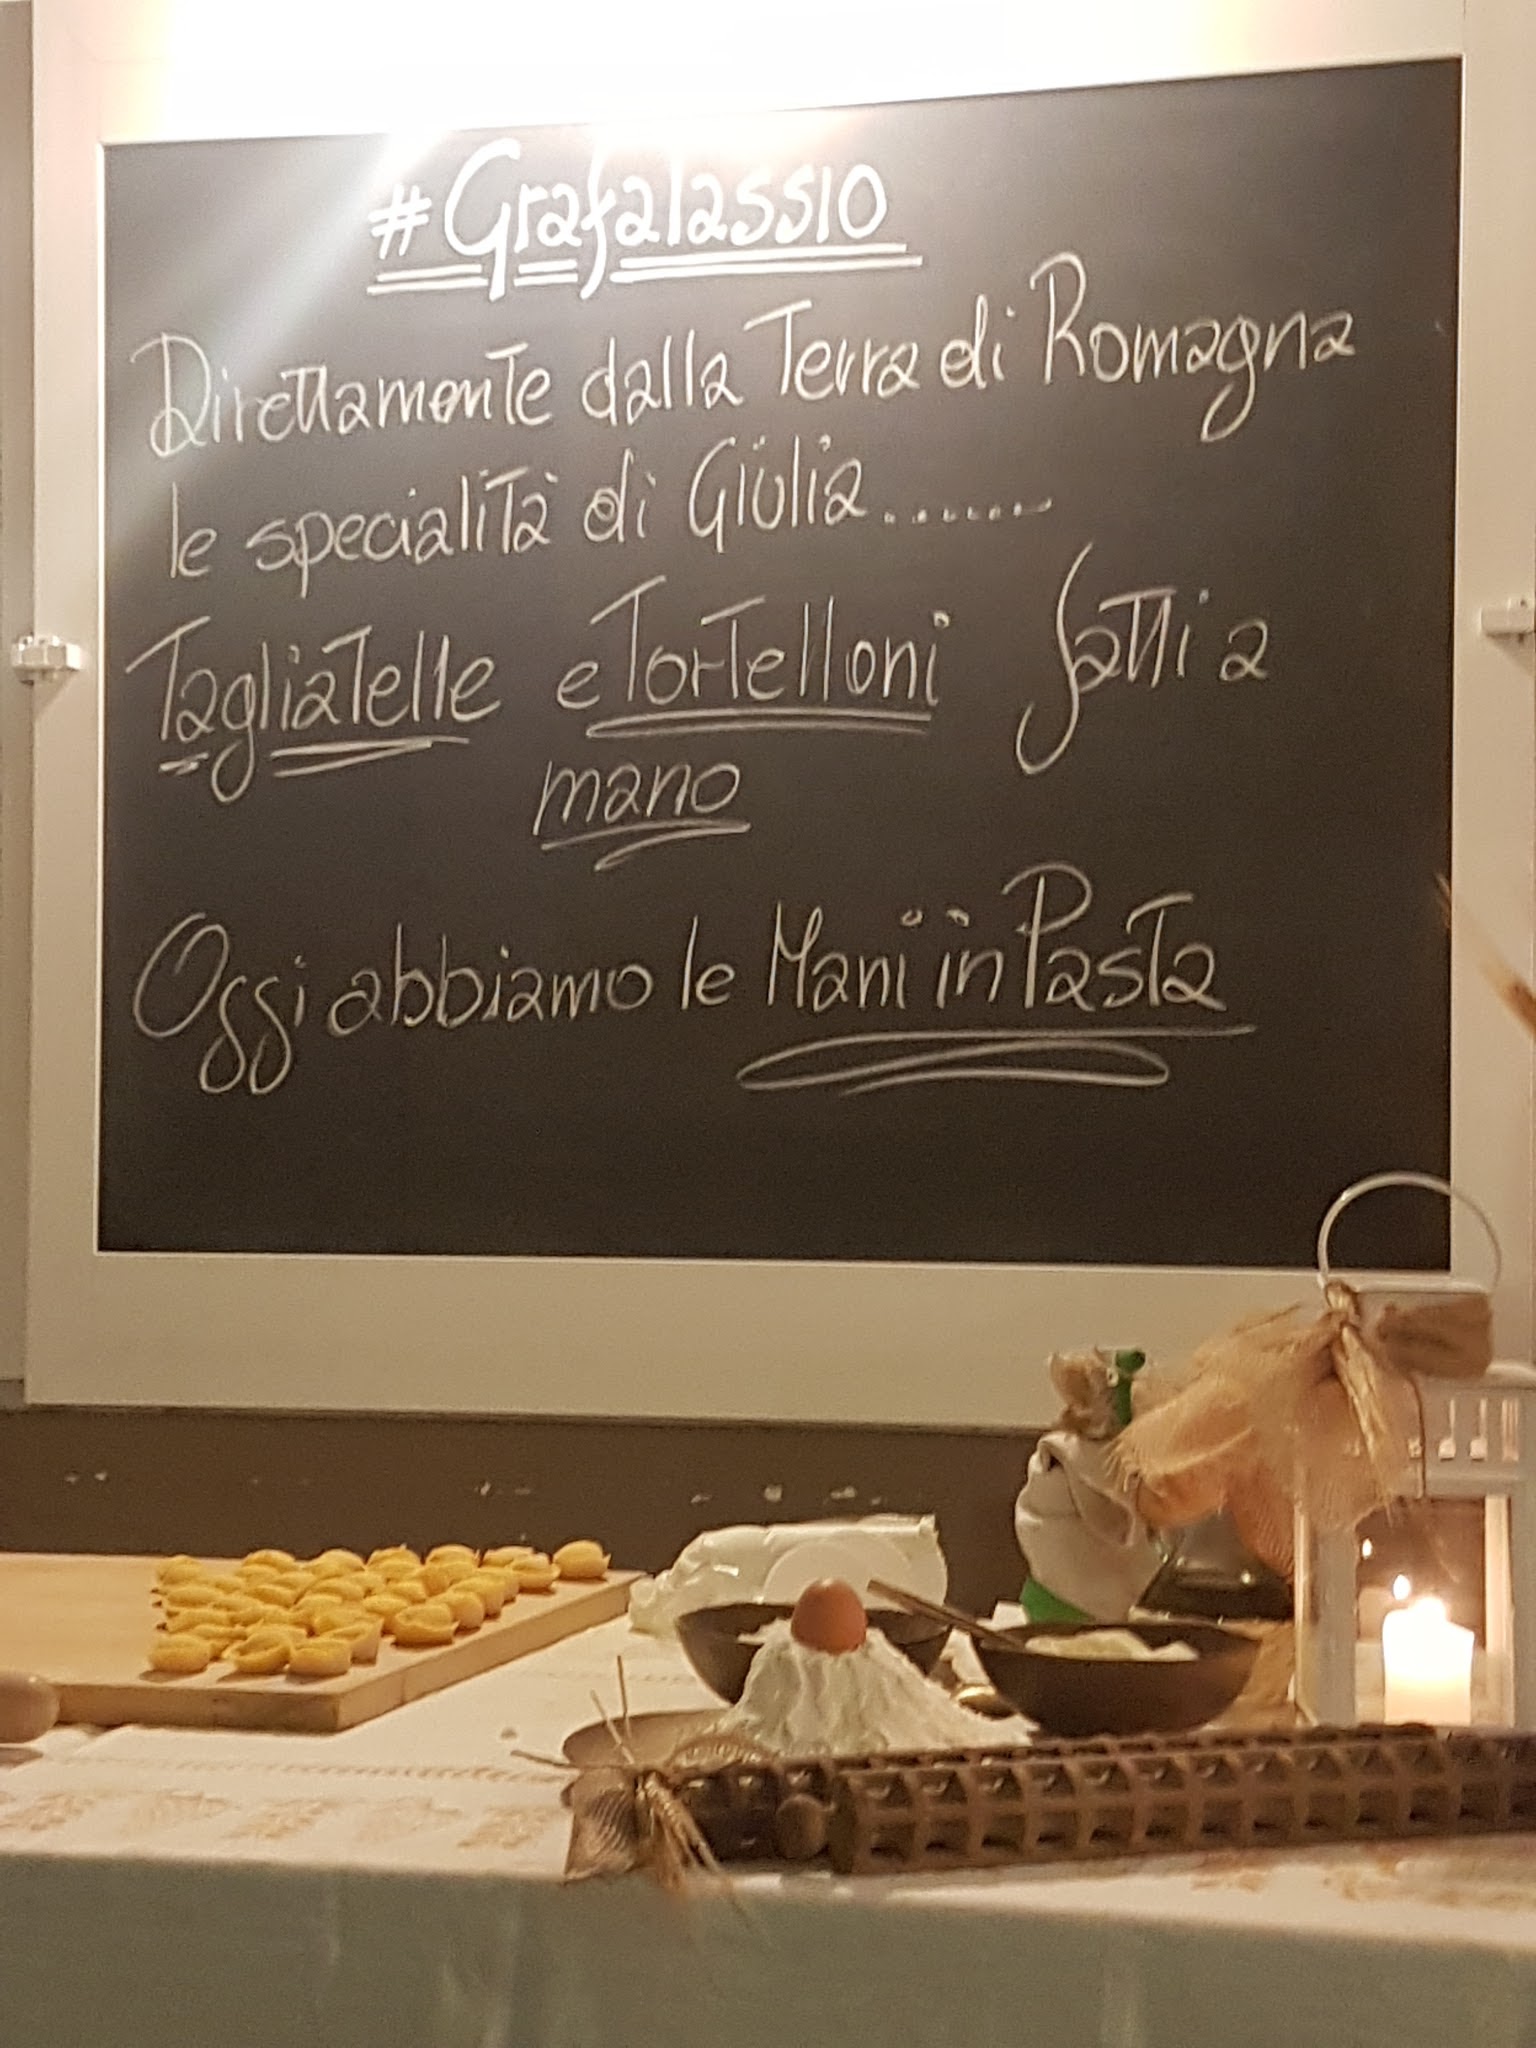 #Grafalassio
Direttamente dalla Terra di Romagna
le specialità di Giulia........
Tagliatelle e Tortelloni fatti a
mano
Oggi abbiamo le Mani in Pasta